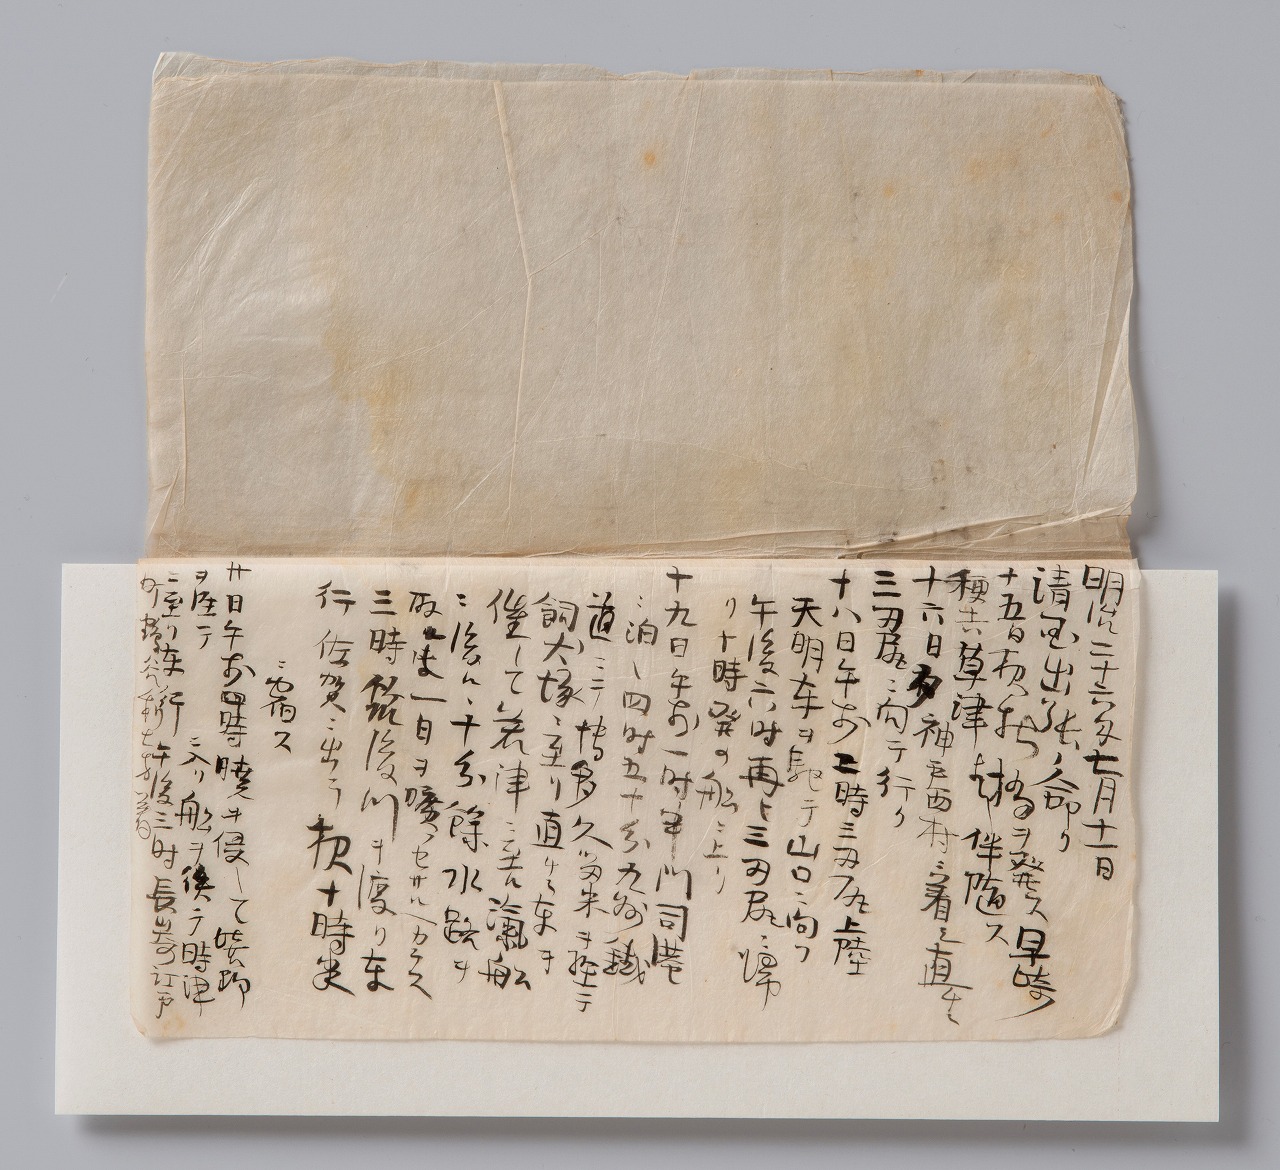 明治二十六年七月十一日
清国出張ノ命アリ
十五日夜 ヲ発ス早崎
稉吉草津迠伴随ス
十六日夕神戸西村ニ着シ直チニ
三田尻ニ向テ行ク
十八日午前二時三田尻上陸
天明車ヲ馳テ山口ニ向フ
午後六時再ヒ三田尻ニ帰
リ十時発ノ船ニ上リ
十九日午前一時半門司港
ニ泊シ四時五十分九州鉄
道ニテ博多久留米ヲ経テ
飼犬塚ニ至リ直チニ車ヲ
催して若津ニ至ル滊船
ニ後ルヽ十分餘水路ヲ
取レハ一日ヲ曠セサルヘカラス
三時筑後川ヲ渡リ車
行佐賀ニ出テ夜十時
ニ宿ス
廿日午前四時暁ヲ侵して
ヲ経テ 入リ船ヲ僕テ時津
ニ至リ車行午後三時長崎江戸
町 着